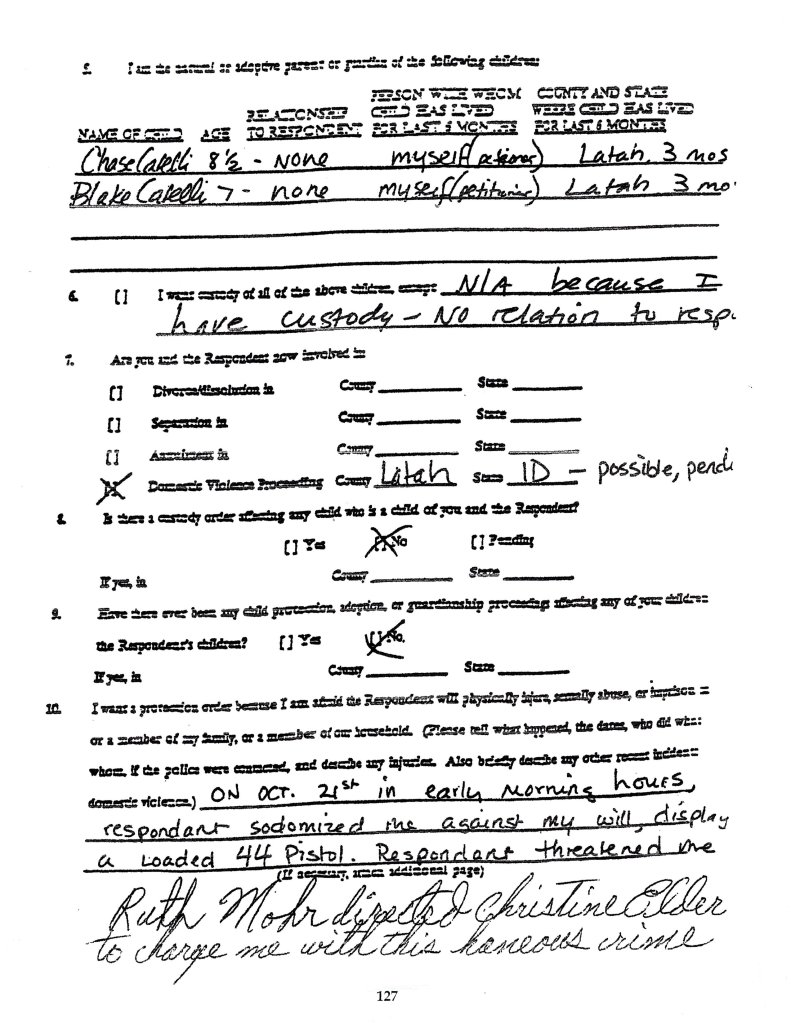 5. I am the natural or adoptive parent or guardian of the following children:
PERSON WITH WHOM COUNTY AND STATE
RELATIONSHIP CHILD HAS LIVED WHERE CHILD HAS LIVED
NAME OF CHILD AGE TO RESPONDENT FOR LAST 6 MONTHS FOR LAST 6 MONTHS
Chase Catelli 8½ - None myself (petitioner) Latah, 3 mos
Blake Catelli 7 - none myself (petitioner) Latah 3 mo
6. [ ] I want custody of all of the above children, except N/A because I
have custody - No relation to resp.
7. Are you and the Respondent now involved in:
[ ] Divorce/dissolution in County State
[ ] Separation in County State
[ ] Annulment in County State
[X] Domestic Violence Proceeding County Latah State ID - possible, pendi
8. Is there a custody order affecting any child who is a child of you and the Respondent?
[ ] Yes [X] No [ ] Pending
If yes, in County State
9. Have there ever been any child protection, adoption, or guardianship proceedings affecting any of your children
the Respondent's children? [ ] Yes [X] No.
If yes, in County State
10. I want a protection order because I am afraid the Respondent will physically injure, sexually abuse, or imprison
or a member of my family, or a member of our household. (Please tell what happened, the dates, who did what
whom, if the police were contacted, and describe any injuries. Also briefly describe any other recent incidents
domestic violence.) ON OCT. 21st in early morning hours,
respondant sodomized me against my will, display
a loaded 44 Pistol. Respondant threatened me
(If necessary, attach additional page)
Ruth Mohr directed Christine Elder
to charge me with this haneous crime
127